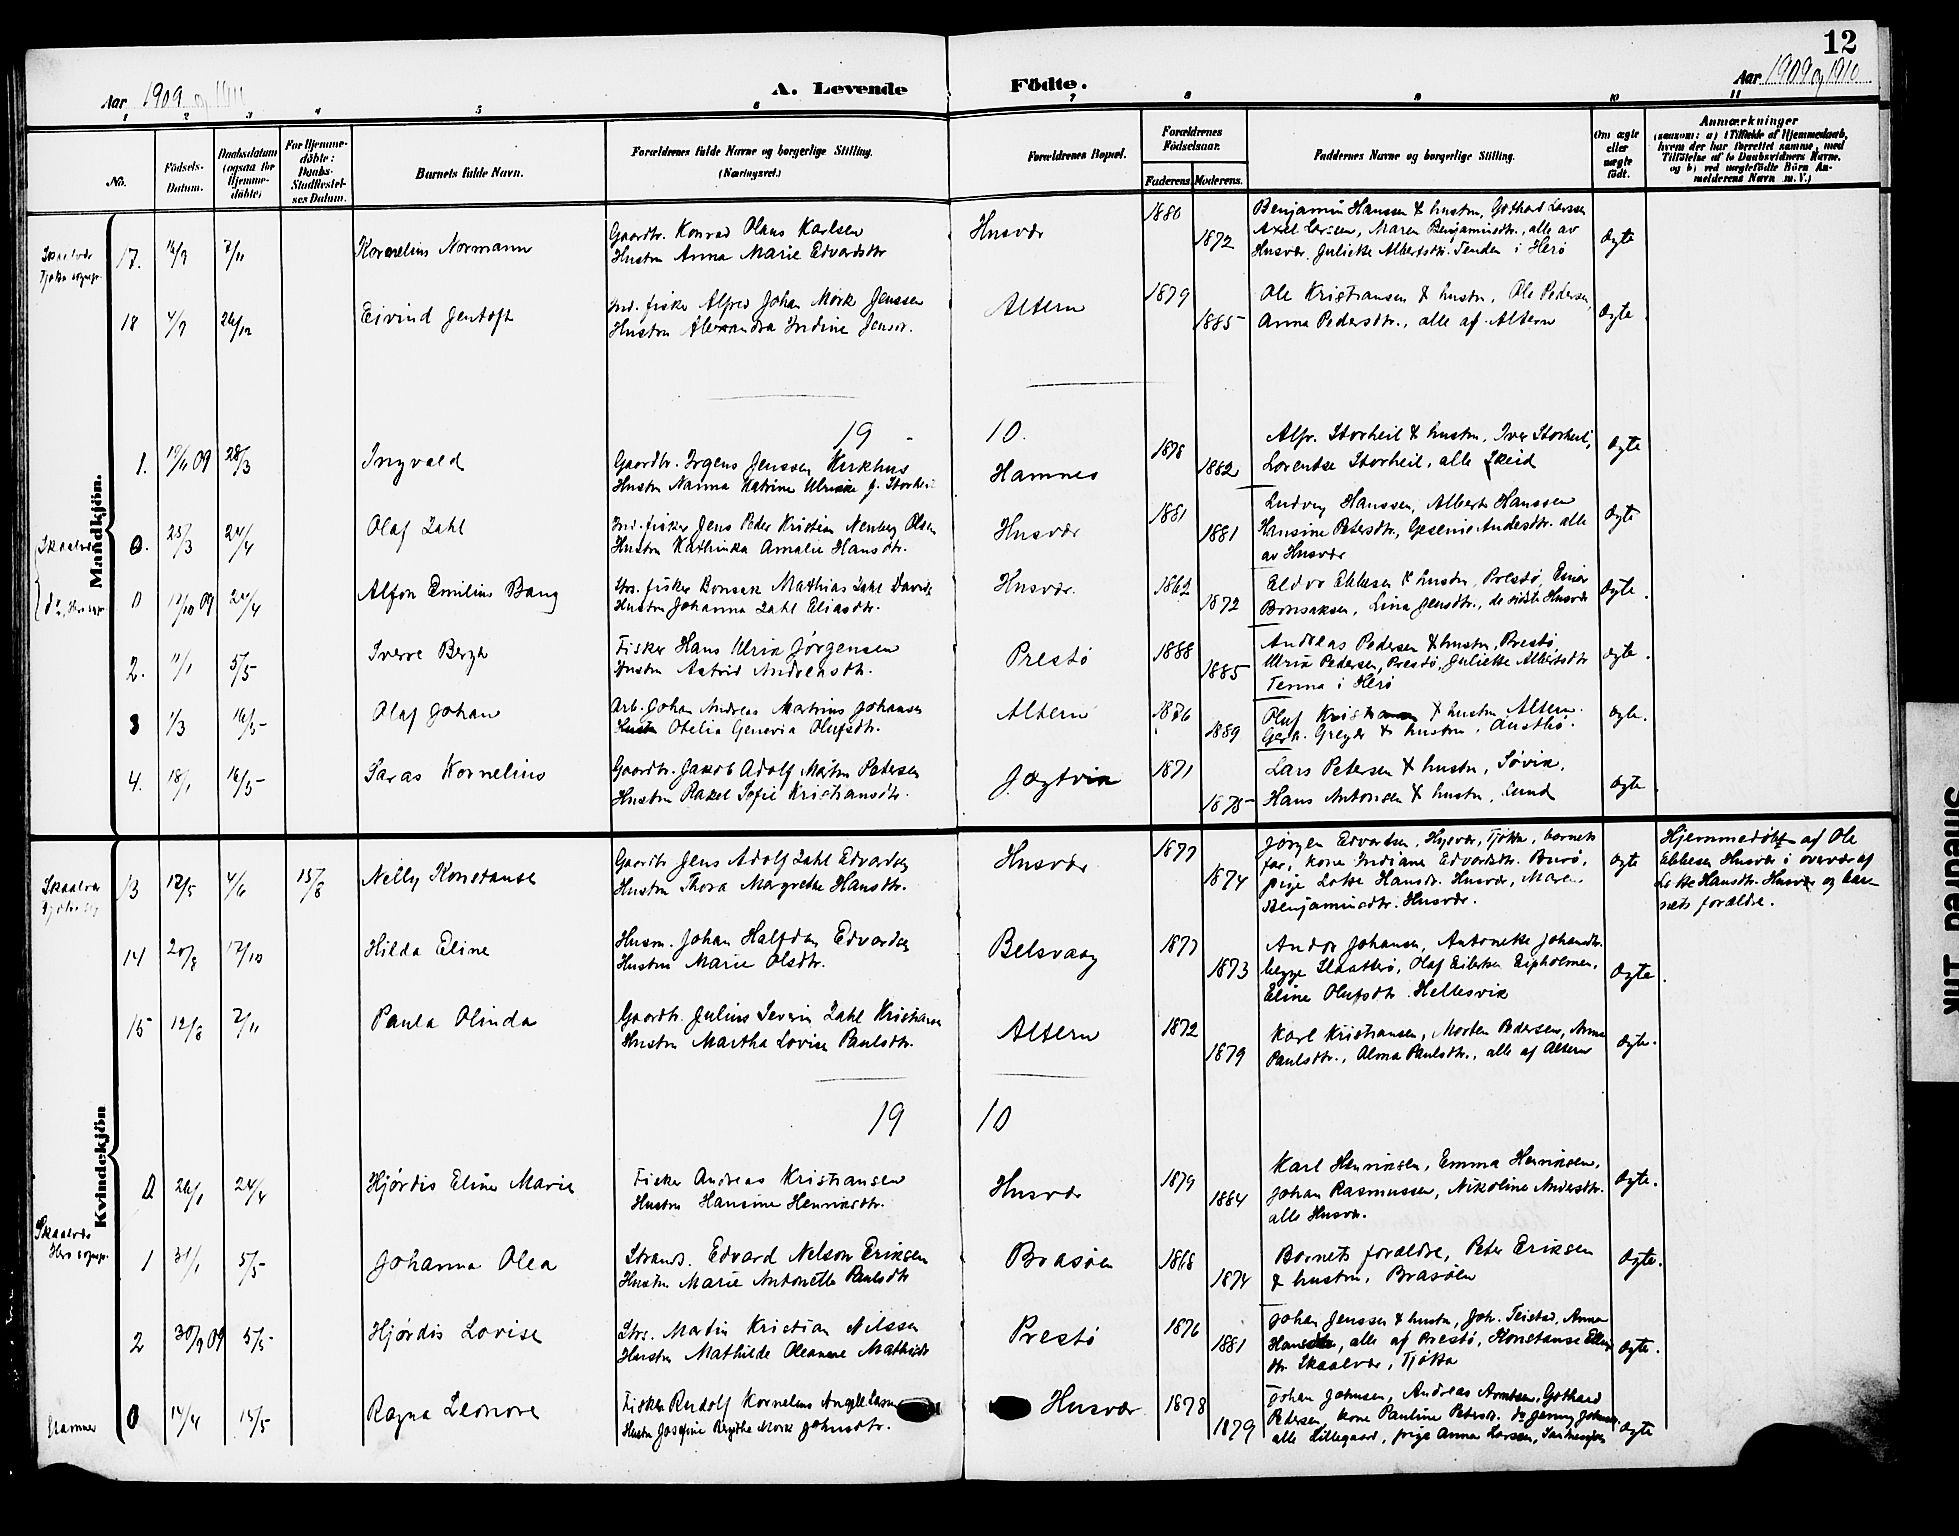 12
Aar 1909 og
A. Levende Födte.
Aar 1909 og 1910
1 2 3 4 5 6 7 8 9 10 11
No.
Födsels-
Datum.
Daabsdatum
(ogsaa for
Hjemme-
döbte)
For Hjemme-
döbte:
Daabs-
Stadfæstel-
ses Datum.
Barnets fulde Navn.
Forældrenes fulde Navne og borgerlige Stilling.
(Næringsvei.)
Forældrenes Bopæl.
Forældrenes
Födselsaar.
Faderens. Moderens.
Faddernes Navne og borgerlige Stilling.
Om ægte
eller
uægte
födt.
Anmærkninger
(saasom: a) i Tilfælde af Hjemmedaab,
hvem der har forrettet samme, med
Tilföielse af to Daabsvidners Navne,
og b) ved uægtefödte Börn An-
melderens Navn m. V.)
Mandkjön.
17. 7/11 Kornelius Normann
Gaardbr. Konrad Olaus Karlsen
Hustru Anna Marie Edvardsdtr
Husvær 1880 1872
Benjamin Hanssen & hustru, Gothard Larssen
Axel Larsen, Maren Benjaminsdtr., alle av
Husvær. Juliette Albertsdtr. Tenden i Herö
ægte
18 4/9 26/12 Eivind Jentoft
Ind. fisker Alfred Johan Mörk Jenssen
Hustru Alexandra Indine Jensdr.
Altern 1879 1885
Ole Kristiansen & hustru, Ole Pedersen,
Anna Pedersdtr., alle af Altern
ægte.
19 10.
1. 09 28/3 Ingvald
Gaardbr. Jrgens Jenssen Kirkhus
Hustru Nanna Katrine Ulrikke f. Storheil
Hamnes 1878 1882
Alfr. Storheil & hustru, Iver Storheil,
Lorentse Storheil, alle Skeid
ægte
0. 25/3 24/4 Olaf Zahl
Ind. fisker Jens Peder Kristian Nenberg Olsen
Hustru Kathinka Amalie Hansdtr.
Husvær 1881 1881
Ludvig Hanssen, Albert Hanssen
Hansine Petersdtr, Gesenie Andersdtr. alle
av Husvær
ægte
0 12/10 09 24/4 Alfon Emilius Bang
Str. fisker Bonsak Mathias Zahl Davids
Hustru Johanna Zahl Eliasdtr.
Husvær. 1862 1872
Eldor Ebbesen & hustru, Prestö, Einar
Bonsaksen, Lina Jensdtr., de sidste Husvær
ægte.
2. 11/1 5/5 Sverre Bergh
Fisker Hans Ulrik Jörgensen
Hustru Astrid Andreasdtr.
Prestö 1888 1885
Andreas Pedersen & hustru, Prestö,
Ulrik Pedersen, Prestö, Juliette Albertsdtr
Tenna i Herö
ægte.
3 1/3 16/5 Olaf Johan
Arb. Johan Andreas Martinus Johansen
Hustr Otelia Genevia Olufsdtr.
Altern 1876 1889
Oluf Kristiansen & hustru Altern.
Gerh. Greger & hustru, Austbö.
ægte.
4. 18/1 16/5 Saras Kornelius
Gaardbr. Jakob Adolf Petersen
Hustru Rakel Sofie Kristiansdtr.
Jægtvik 1871 1875
Lars Petersen & hustru, Sövik,
Hans Antonsen & hustru, Lund
ægte
Kvindekjön
13 12/5 4/6 15/8 Nelly Konstanse
Gaardbr Jens Adolf Zahl Edvardsen
Hustru Thora Margrethe Hansdtr.
Husvær 1877 1874
Jörgen Edvardsen, Husvær, Tjötta, barnets
far, kone Indiane Edvardsdtr. Burö,
pige Lotte Hansdr. Husvær, Maren
Benjaminsdtr. Husvær.
ægte
Hjemmedöbt af Ole
Ebbesen Husvær i overvær af
Lotte Hansdtr. Husvær og bar-
nets forældre.
14 20/8 17/10 Hilda Eline
Husm. Johan Halfdan Edvardsen
Hustru Marie Olsdtr.
Belsvaag 1877 1873
Andor Johansen, Antonette Johansdtr.
begge Slaatterö, Olaf Eilertsen Eipholmen,
Eline Olufsdtr. Hellesvik
ægte.
15 12/8 7/11 Paula Olinda
Gaardbr. Julius Severin Zahl Kristiansen
Hustru Martha Lovise Paulsdtr.
Altern 1872 1879
Karl Kristiansen, Morten Pedersen, Anna
Paulsdtr., Alma Paulsdtr., alle af Altern
ægte.
19 10
0 26/1 24/4 Hjördis Eline Marie
Fisker Andreas Kristiansen
Hustru Hansine Henriksdtr.
Husvær 1879 1884
Karl Henriksen, Emma Henriksen,
Johan Rasmussen, Nikoline Andersdtr.
alle Husvær.
ægte.
1 31/1 5/5 Johanna Olea
Strands. Edvard Nelson Eriksen
Hustru Marie Antonette Paulsdtr
Brasöen 1868 1874
Barnets forældre, Peter Eriksen
& hustru, Brasöen
ægte.
2 30/9 09 5/5 Hjördis Lovise
Str. Martin Kristian Nilssen
Hustru Mathilde Oleanne
Prestö 1876 1881
Johan Jenssen & hustru, Joh. Teistad, Anna
alle af Prestö, Konstanse
dtr. Skaalvær, Tjötta
ægte.
0 14/4 15/5 Ragna Leonore
Fisker Rudolf Kornelius
Hustru Josefine Mörk Johnsdtr.
Husvær 1878 1879
Johan Johnsen, Andreas Arntsen, Gothard
Pedersen, kone Pauline Petersdr. do Jenny Johnsen
alle Lillegaard, pige Anna Larsen,
ægte